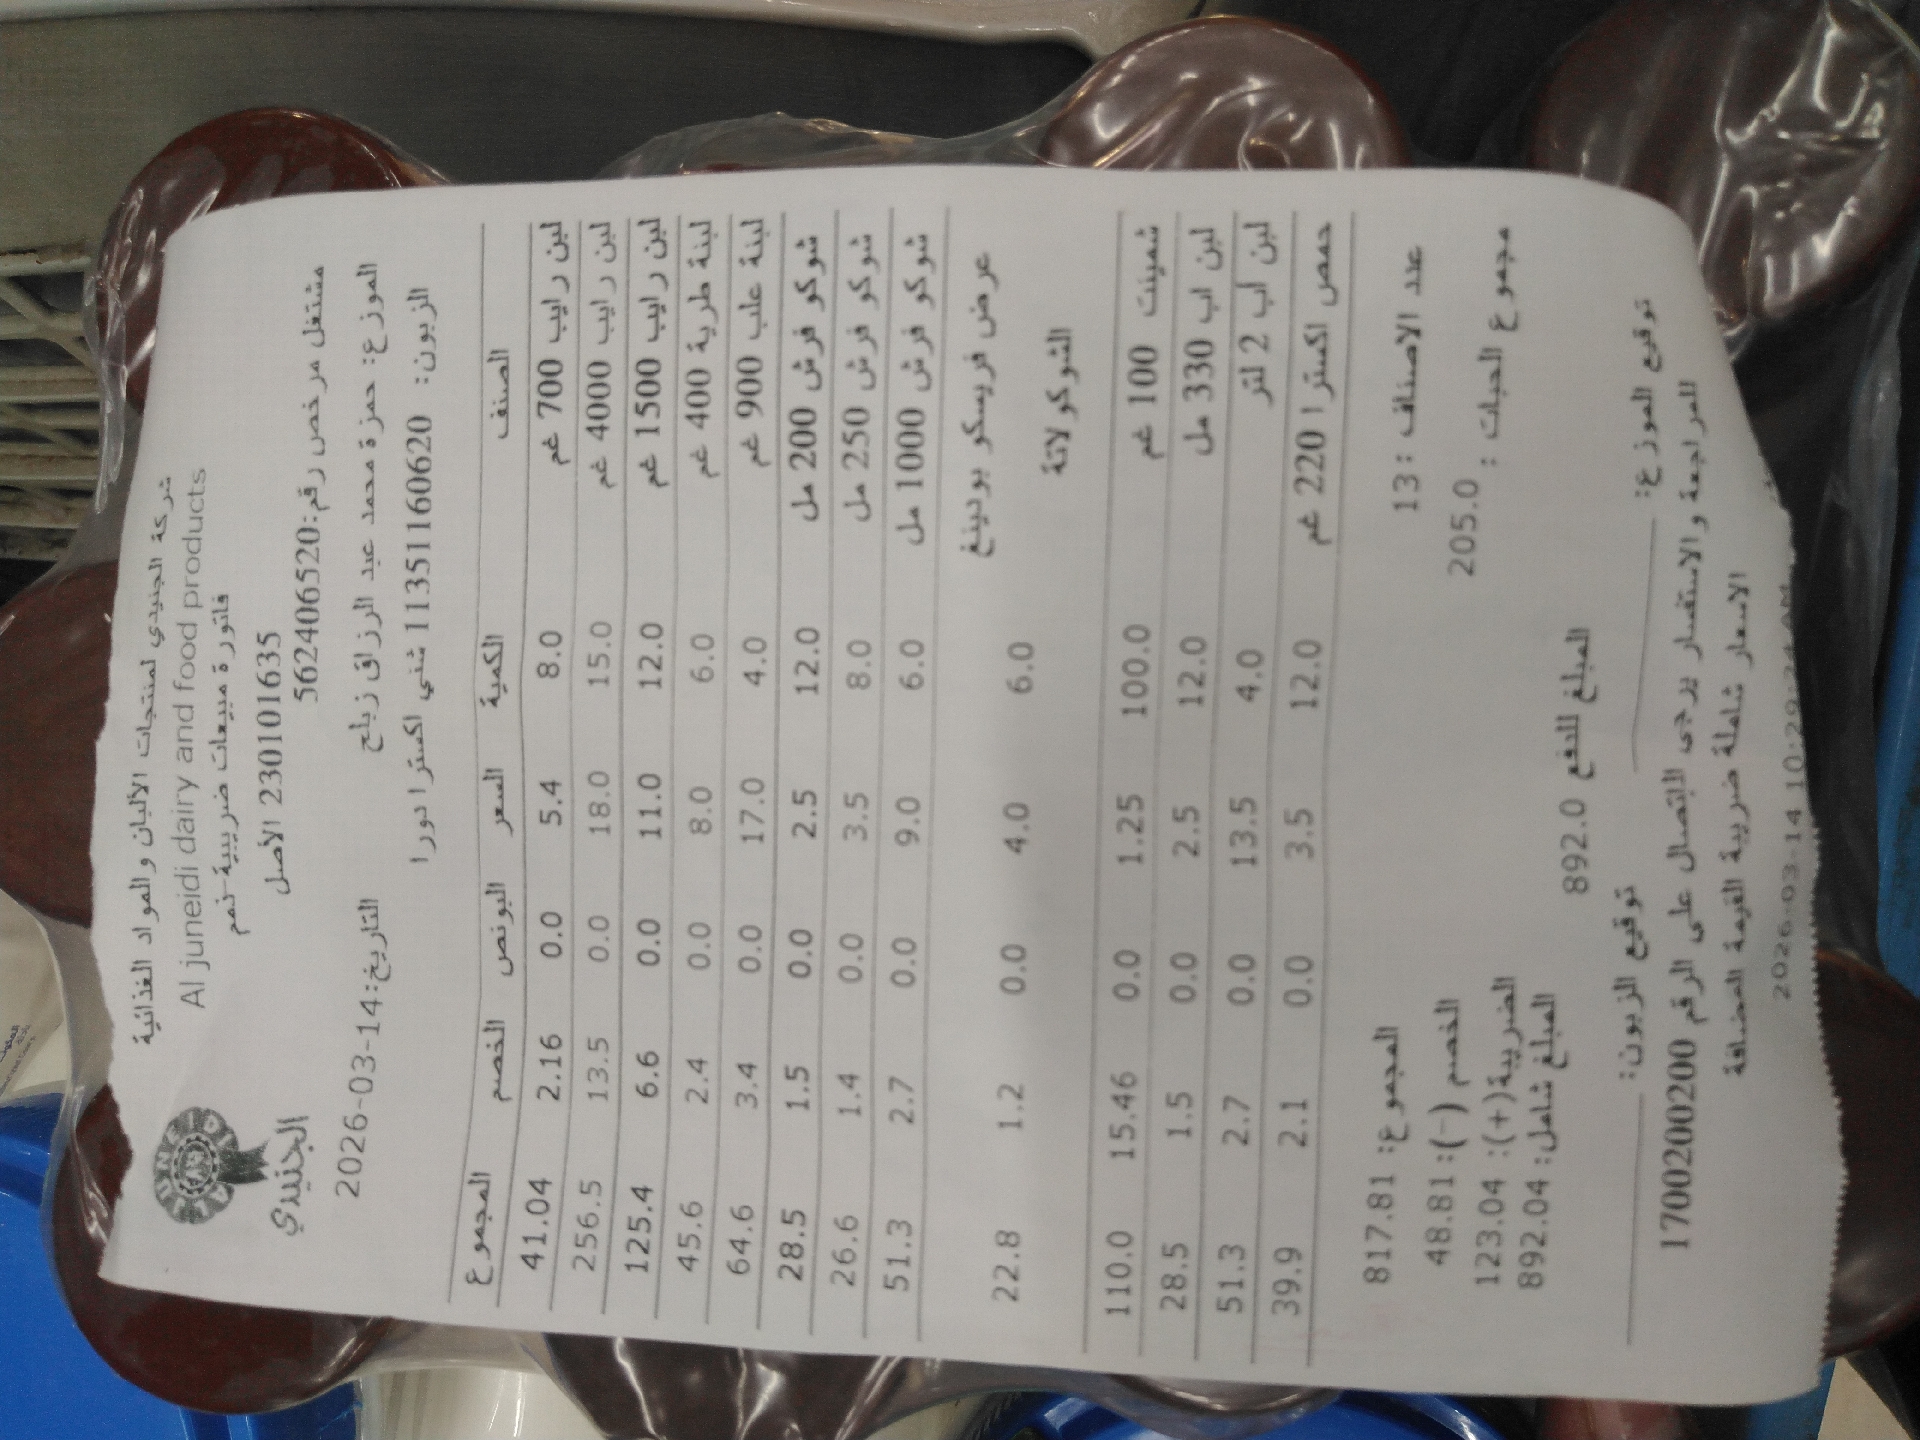 شركة الجنيدي لمنتجات الألبان والمواد الغذائية
Al juneidi dairy and food products
فاتورة مبيعات ضريبية-ذمم
230101635 الأصل
الجنيدي
مشتغل مرخص رقم:562406520
الموزع: حمزة محمد عبد الرزاق زبلح
التاريخ:2026-03-14
الزبون: 1135116062​0 شني اكسترا دورا
الصنف الكمية السعر البونص الخصم المجموع
لبن رايب 700 غم 8.0 5.4 0.0 2.16 41.04
لبن رايب 4000 غم 15.0 18.0 0.0 13.5 256.5
لبن رايب 1500 غم 12.0 11.0 0.0 6.6 125.4
لبنة طرية 400 غم 6.0 8.0 0.0 2.4 45.6
لبنة علب 900 غم 4.0 17.0 0.0 3.4 64.6
شوكو فرش 200 مل 12.0 2.5 0.0 1.5 28.5
شوكو فرش 250 مل 8.0 3.5 0.0 1.4 26.6
شوكو فرش 1000 مل 6.0 9.0 0.0 2.7 51.3
عرض فريسكو بودينغ 6.0 4.0 0.0 1.2 22.8
الشوكولاتة
شمينت 100 غم 100.0 1.25 0.0 15.46 110.0
لبن اب 330 مل 12.0 2.5 0.0 1.5 28.5
لبن اب 2 لتر 4.0 13.5 0.0 2.7 51.3
حمص اكسترا 220 غم 12.0 3.5 0.0 2.1 39.9
عدد الاصناف : 13
المجموع: 817.81
مجموع الحبات : 205.0
الخصم (-): 48.81
الضريبة(+): 123.04
المبلغ شامل: 892.04
المبلغ للدفع 892.0
توقيع الموزع:
توقيع الزبون:
للمراجعة والاستفسار يرجى الاتصال على الرقم 1700200200
الاسعار شاملة ضريبة القيمة المضافة
2026-03-14 10:29:24 AM